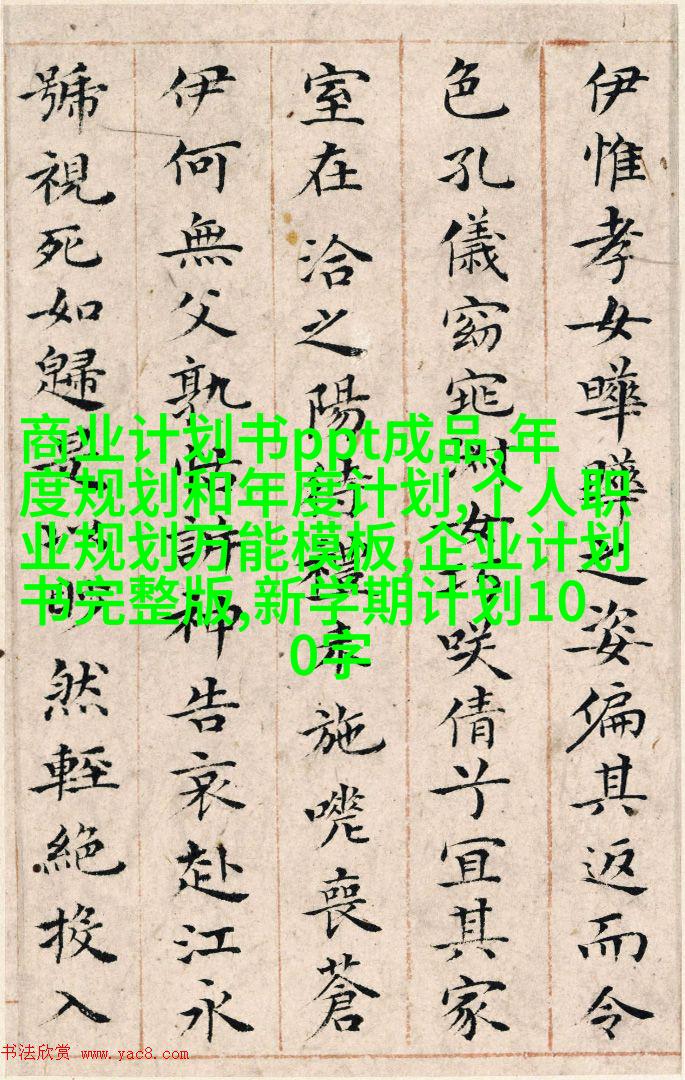 伊惟孝女曄曄之姿偏其返而令
色孔儀窈窕淑女巧咲倩兮宜其家
室在洽之陽待禮未施嗟喪蒼
伊何無父孰怙訴神告哀赴江永
號視死如歸是以眇然輕絕投入
商业计划书ppt成品,年
度规划和年度计划,个人职
业规划万能模板,企业计划
书完整版,新学期计划10
0字
书法欣赏 www.yac8.com